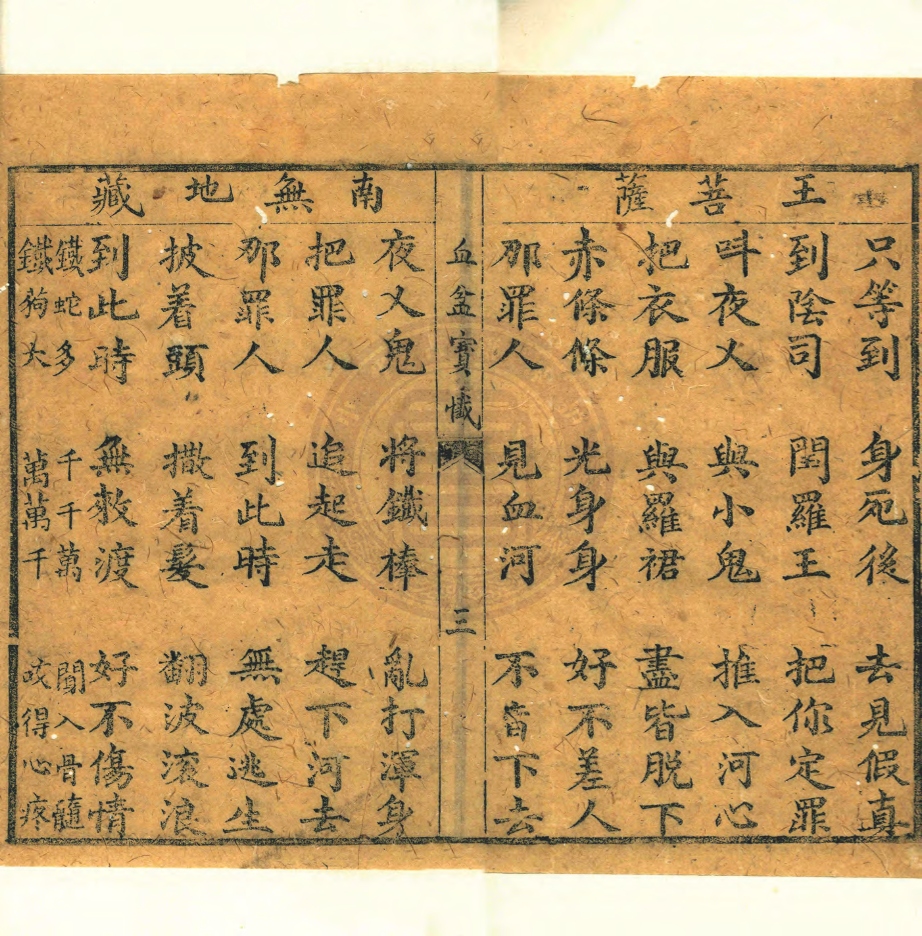 王菩薩
只等到 身死後 去見假真
到陰司 閻羅王 把你定罪
呌夜乂 與小鬼 推入河心
把衣服 與羅裙 盡皆脱下
赤條條 光身身 好不羞人
那罪人 見血河 不肯下去
血盆寳懺 三
南無地藏
夜乂鬼 將鐵棒 亂打渾身
把罪人 追起走 趕下河去
那罪人 到此時 無處逃生
披着頭 撒着髮 翻波滚浪
到此時 無救渡 好不傷情
鐵蛇多 千千萬 閗入骨髓
鐵狗大 萬萬千 咬得心疼